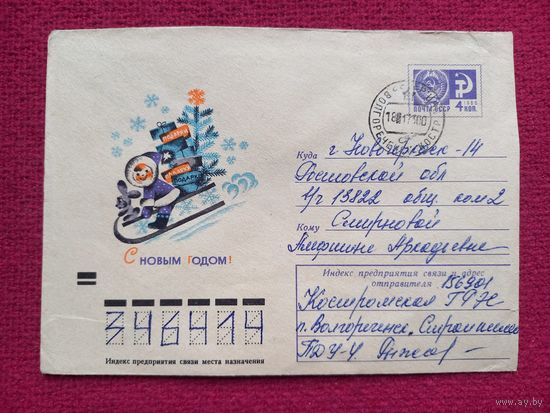 ПОЧТА СССР
1966
4 КОП.
ВОЛГОРЕЧЕНСК
ПОДАРКИ
С НОВЫМ ГОДОМ!
Куда г. Новочеркасск-14
Ростовской обл
общ. ком 2
Кому Смирновой
Аркадьевне
Индекс предприятия связи и адрес
отправителя 156901
Костромская ГРЭС
п. Волгореченск, Строителей
346414
Индекс предприятия связи места назначения
ay.by